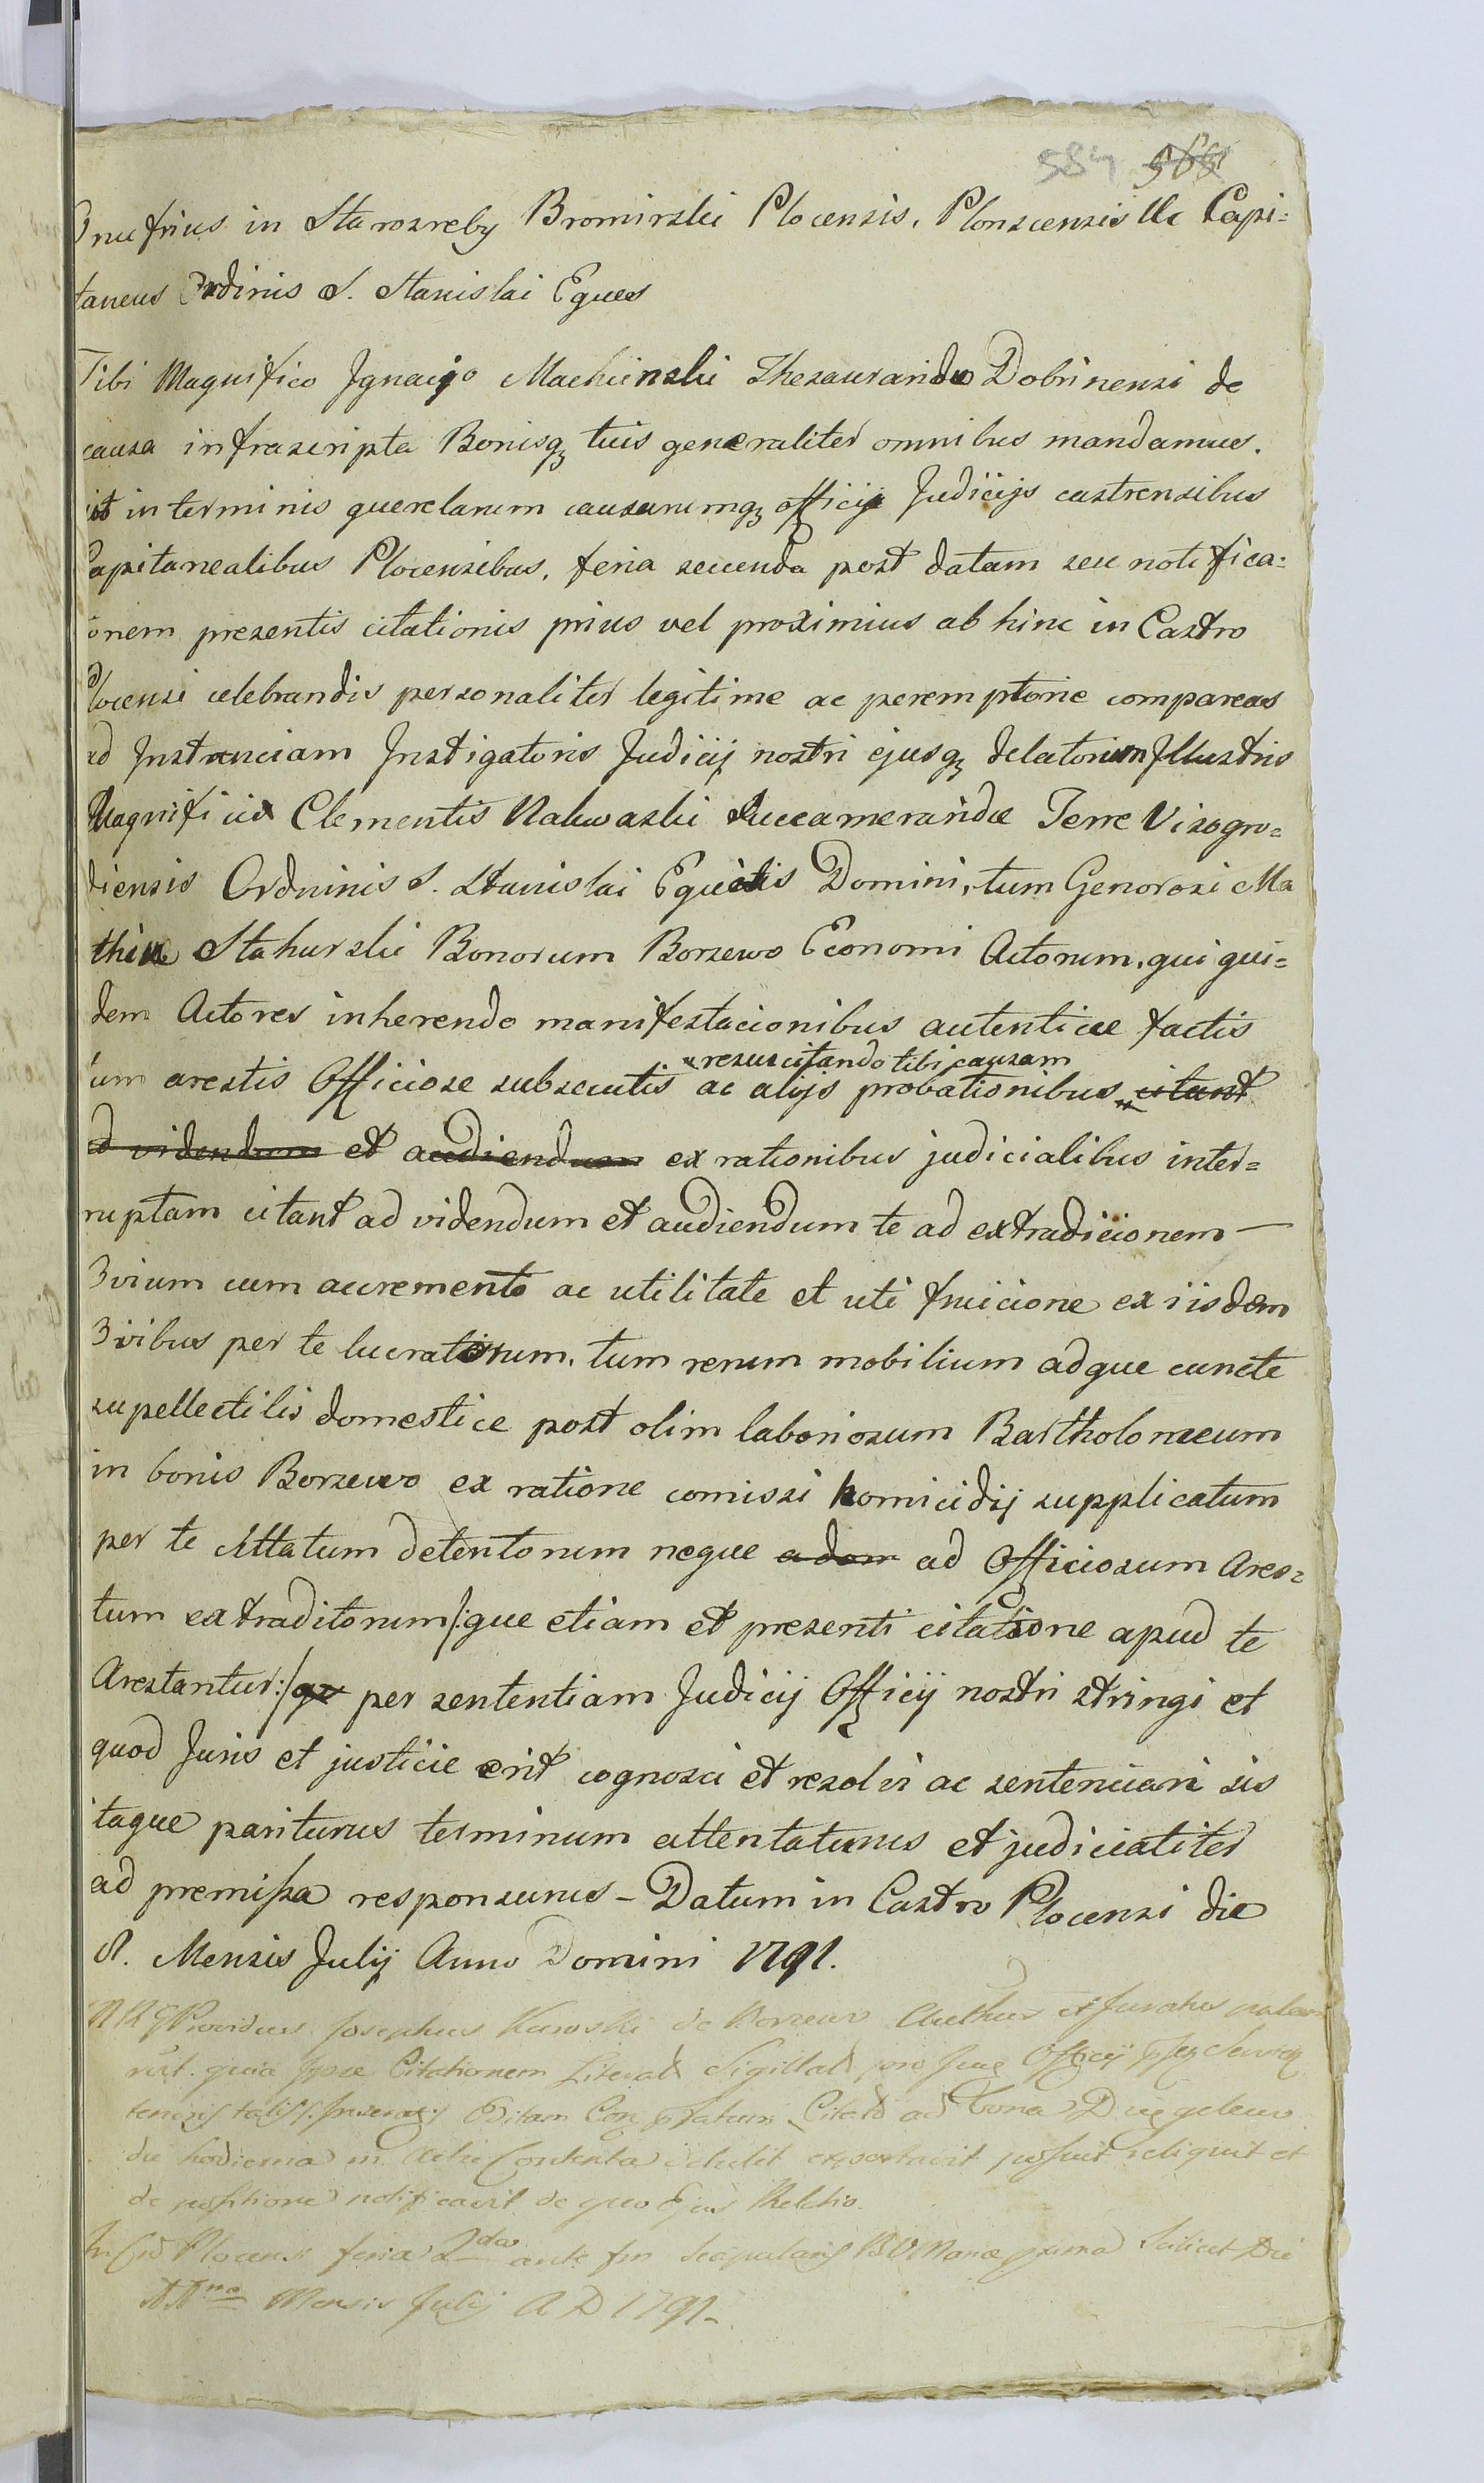 584 568
Onufrius in Starozreby Bromirski Plocensis, Plonscensis Uc Capi:
taneus Ordinis S. Stanislai Eques
Tibi Magnifico Jgnacyo Machcinski Thesaurando Dobrinensi de
causa infrascripta Bonisqz tuis generaliter omnibus mandamus.
ut in terminis querelarum causarumqz officij Judicijs castrensibus
Capitanealibus Plocensibus, feria secunda post datam seu notifica:
onem presentis citationis prius vel proximius ab hinc in Castro
Plocensi celebrandis personaliter legitime ac peremptorie compareas
ad Jnstanciam Jnstigatoris Judicij nostri ejusqz delatorum Jllustris
Magnifici Clementis Nakwaski Succamerandæ Terre Visogro=
diensis Ordninis S. Stanislai Equitis Domini, tum Generosi Ma
thiæ Stahurski Bonorum Borzewo Economi Actorum, qui qui=
dem Actores inherendo manifestacionibus autentice factis
"resuscitando tibi causam
um arestis Officiose subsecutis ac alijs probationibus " citant
ad videndum et audiendum ex rationibus judicialibus inter=
ruptam citant ad videndum et audiendum te ad extradicionem —
Bvium cum accremento ac utilitate et uti fruicione ex iisdem
Bvibus per te lucratorum, tum rerum mobilium adque cuncte
supellectilis domestice post olim laboriosum Bartholomeum
in bonis Borzewo ex ratione comissi homicidij supplicatum
per te Cittatum detentorum neque adom ad Officiosum Ares=
tum extraditorum /:que etiam et presenti citatione apud te
Arestantur:/ per sententiam Judicij Officij nostri stringi et
quod Juris et justicie erit cognosci et resolvi ac sentenciari sis
itaque pariturus terminum attentaturus et judicialiter
ad premissa responsurus – Datum in Castro Plocensi die
Mensis Julij Anno Domini 1791.
Providus Josephus Kuroski de Borzewo et Juratus
quia Citationem Literal Sigillat pro Officij
Citato ad bona
die hodierna in Contenta detulit exportavit posuit reliquit et
de positione notificavit de quo Ejus Relatio.
Plocensi feria 2da ante Scapularis B V Maria prima Scilicet Die
Mensis Julij A D 1791-